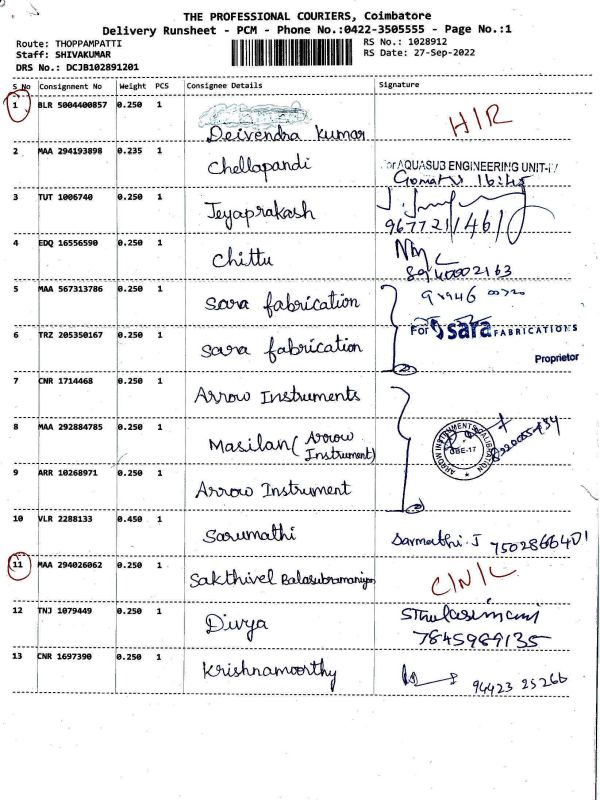 THE PROFESSIONAL COURIERS, Coimbatore
Delivery Runsheet - PCM - Phone No.:0422-3505555 - Page No.:1
Route: THOPPAMPATTI
RS No.: 1028912
Staff: SHIVAKUMAR
RS Date: 27-Sep-2022
DRS No.: DCJB102891201
S No Consignment No Weight PCS Consignee Details Signature
1 BLR 5004400857 0.250 1 Deivendra Kumar H/R
2 MAA 294193898 0.235 1 Chellapandi For AQUASUB ENGINEERING UNIT-IV
16:45
3 TUT 1006740 0.250 1 Jeyaprakash
4 EDQ 16556590 0.250 1 Chittu
5 MAA 567313786 0.250 1 Sara fabrication
6 TRZ 205350167 0.250 1 Sara fabrication For sara FABRICATIONS
Proprietor
7 CNR 1714468 0.250 1 Arrow Instruments
8 MAA 292884785 0.250 1 Masilan (Arrow Instrument) ARROW INSTRUMENTS CALIBRATION CBE-17
9 ARR 10268971 0.250 1 Arrow Instrument
10 VLR 2288133 0.450 1 Sarumathi Sarmathi.J 7502866401
11 MAA 294026062 0.250 1 Sakthivel Balasubramaniyan C/N/L
12 TNJ 1079449 0.250 1 Divya
7845989135
13 CNR 1697390 0.250 1 Krishnamoorthy 94423 25266